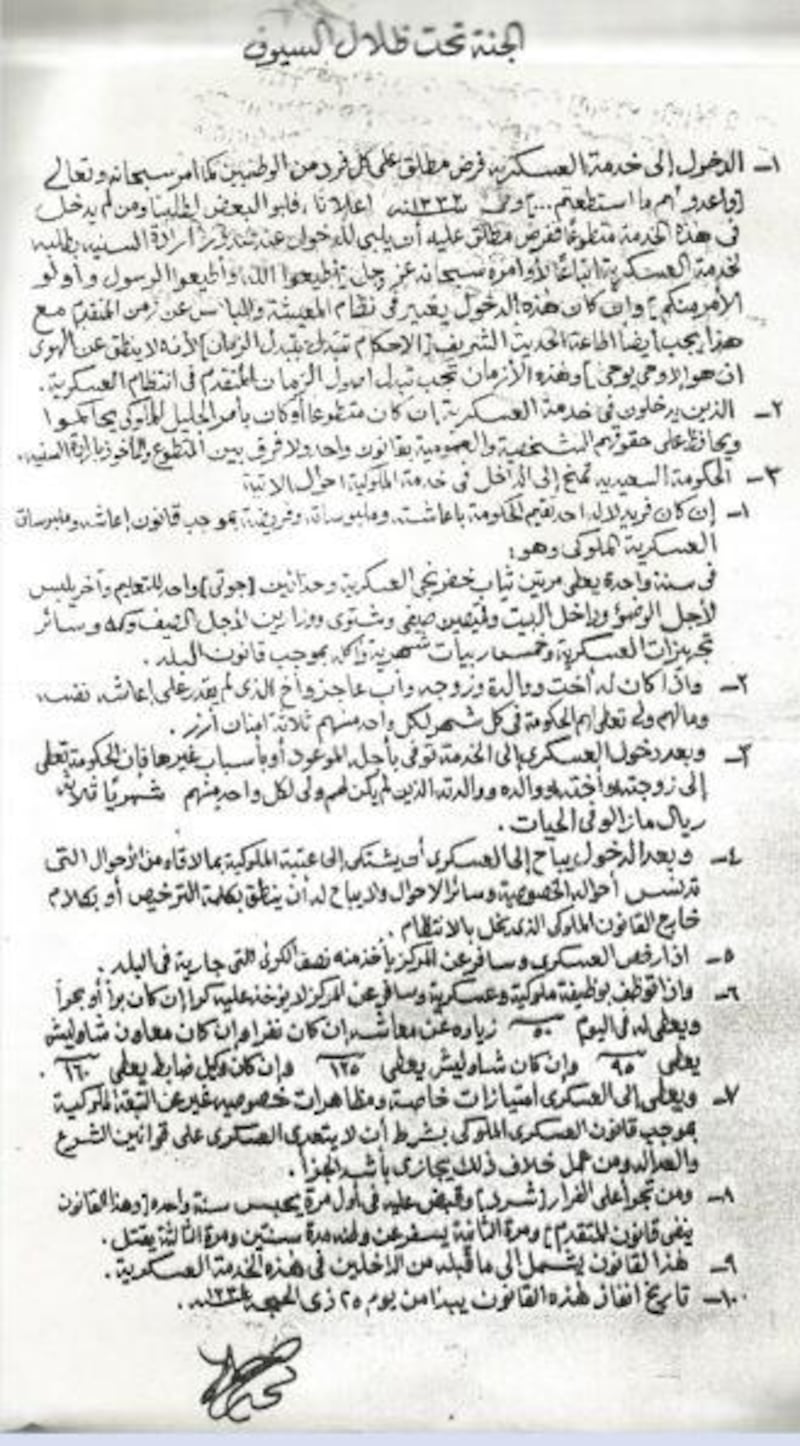 الجنة تحت ظلال السيوف
١- الدخول إلى خدمة العسكرية فرض مطلق على كل فرد من الوطنيين كما امر سبحانه وتعالى
[واعدو لهم ما استطعتم ...] وفي سنة ١٣٣٢ اعلانا، فابو البعض لطلبنا ومن لم يدخل
في هذه الخدمة متطوعًا ففرض مطلق عليه أن يلبي للدخول عند إرادة السنيه بطلبه
لخدمة العسكرية اتباعًا لأوامره سبحانه عز وجل [أطيعوا الله وأطيعوا الرسول وأولو
الأمر منكم] وإن كان هذه الدخول يغير في نظام المعيشة واللباس عن زمن المتقدم مع
هذا يجب أيضًا اطاعة الحديث الشريف [الاحكام تتبدل بتبدل الزمان] لأنه لا ينطق عن الهوى
ان هو إلا وحي يوحى] وهذه الأزمان تحب تبدل اصول الزمان المتقدم في انتظام العسكرية.
٢- الذين يدخلون في خدمة العسكرية إن كان متطوعا أو كان بأمر الجليل الملوكي يحاكموا
ويحافظ على حقوقهم الشخصية والعمومية بقانون واحد ولا فرق بين المتطوع والمأخوذ بارادة السنيه.
٣- الحكومة السعيديه تمنح إلى الداخل في خدمة الملوكية احوال الاتية
١- إن كان فريد لا له احد تقيم الحكومة باعاشته وملبوساته وفريضة بموجب قانون إعاشه وملبوسات
العسكرية الملوكي وهو:
في سنة واحدة يعطى مرتين ثياب سفرنجي العسكرية وحذائين [جوتي] واحد للتعليم وآخر يلبس
لأجل الوضوء وداخل البيت وقميصين صيفي وشتوي ووزارين لأجل الصيف وكمه وسائر
تجهيزات العسكرية وخمسة ربيات شهرية وأكله بموجب قانون البلد.
٢- واذا كان له أخت ووالدة وزوجه وأب عاجز وأخ الذي لم يقدر على إعاشه نفسه
وما لهم ولي تعطي لهم الحكومة في كل شهر لكل واحد منهم ثلاثة امنان أرز.
٣- وبعد دخول العسكري إلى الخدمة توفى بأجل الموعود أو بأسباب غيرها فإن الحكومة تعطى
إلى زوجته وأخته ووالده ووالدته الذين لم يكن لهم ولي لكل واحد منهم شهريًا ثلاثة
ريال مازالو في الحيات.
٤- وبعد الدخول يباح إلى العسكري أن يشتكي إلى عتبة الملوكية بما لاقاه من الأحوال التي
تدنس أحواله الخصوصية وسائر الاحوال ولا يباح له أن ينطق بكلمة الترخيص أو بكلام
خارج القانون الملوكي الذي يخل بالانتظام.
٥- اذا رخص العسكري وسافر عن المركز يأخذ منه نصف الكري التي جارية في البلد.
٦- واذا توظف بوظيفة ملوكية وعسكرية وسافر عن المركز لا يؤخذ عليه كرا إن كان برا أو بحرا
ويعطى له في اليوم ٥٠ زياده عن معاشه إن كان نفرا وإن كان معاون شاوليش
يعطى ٩٥ وإن كان شاوليش يعطى ١٢٥ وإن كان وكيل ضابط يعطى ١٦٠.
٧- ويعطى إلى العسكري امتيازات خاصة ومظاهرات خصوصيه غير عن التبعة الملوكية
بموجب قانون العسكري الملوكي بشرط أن لا يتعدى العسكري على قوانين الشرع
والعداله ومن عمل خلاف ذلك يجازى بأشد الجزا.
٨- ومن تجرأ على الفرار [شرد] وقبض عليه في أول مرة يحبس سنة واحده [وهذا القانون
ينفي قانون المتقدم] ومرة الثانية يسفر عن وطنه مدة سنتين ومرة الثالثة يقتل.
٩- هذا القانون يشمل إلى ما قبله من الداخلين في هذه الخدمة العسكرية.
١٠- تاريخ انفاذ هذه القانون يبدا من يوم ٢٥ ذي الحجة